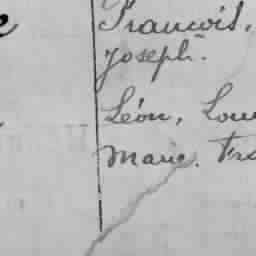 François,
Joseph.
Léon, Lou
Marie. Fra